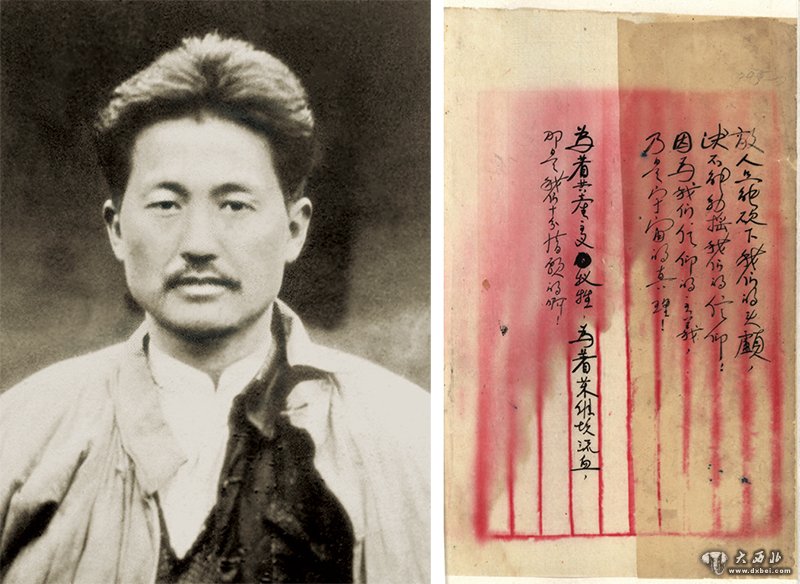 敌人只能砍下我们的头颅，
决不能动摇我们的信仰！
因为我们信仰的主义，
乃是宇宙的真理！
为着共产主义牺牲，为着苏维埃流血，
那是我们十分情愿的啊！
大西北
www.dxbei.com